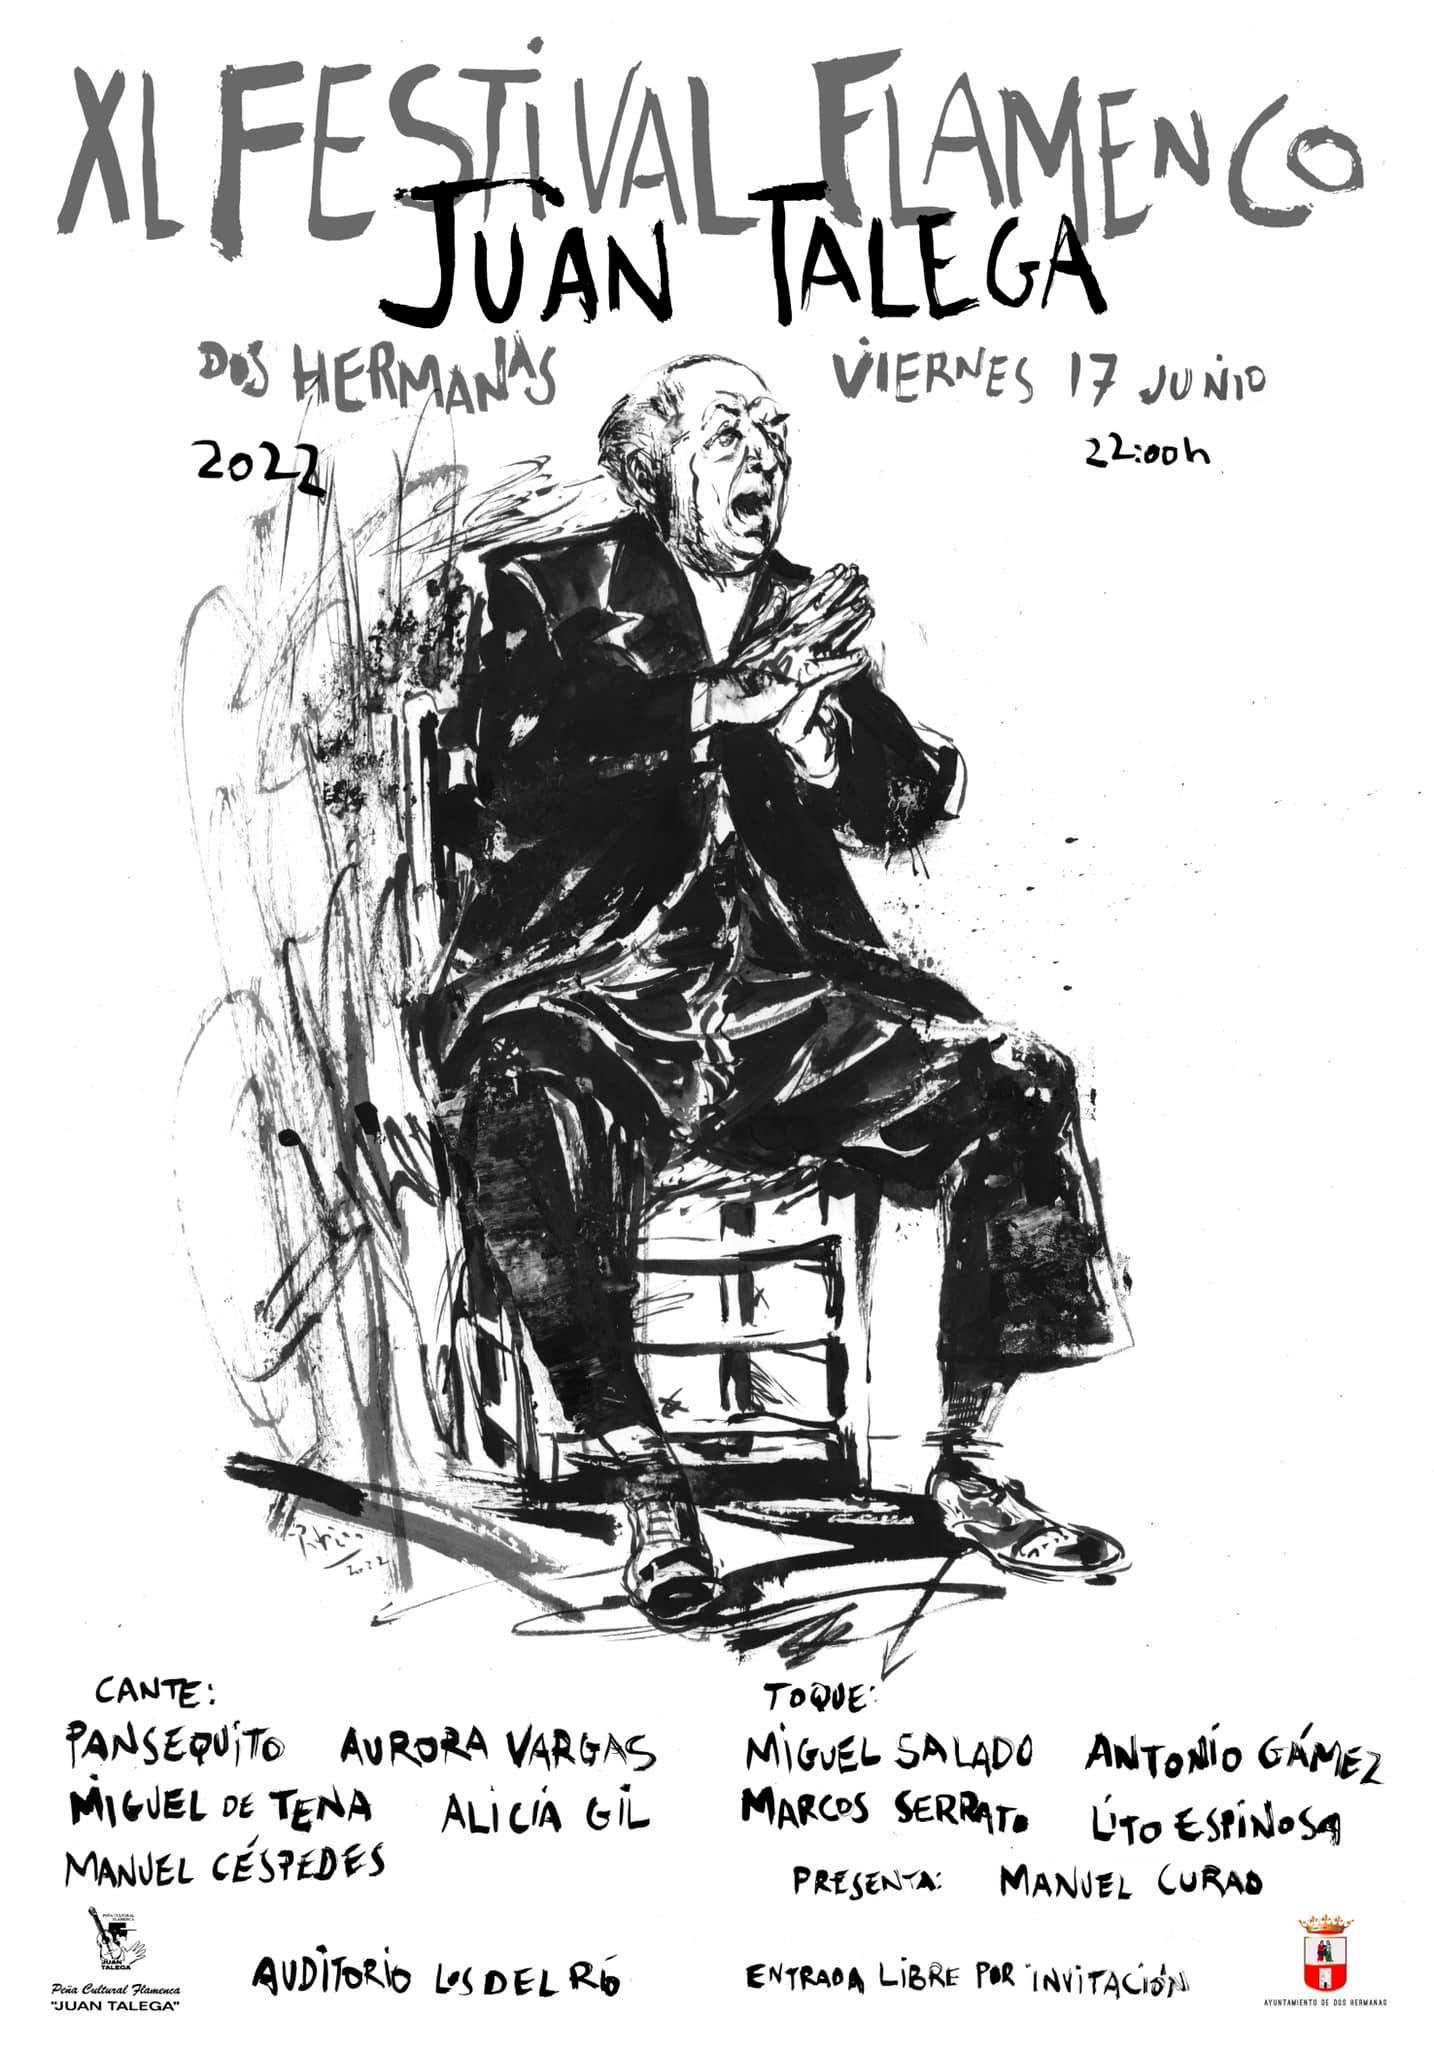 XL FESTIVAL FLAMENCO
JUAN TALEGA
DOS HERMANAS
2022
VIERNES 17 JUNIO
22:00h
2022
CANTE:
PANSEQUITO AURORA VARGAS
MIGUEL DE TENA ALICIA GIL
MANUEL CÉSPEDES
TOQUE:
MIGUEL SALADO ANTONÍO GÁMEZ
MARCOS SERRATO LITO ESPINOSA
PRESENTA: MANUEL CURAO
PEÑA CULTURAL
FLAMENCA
JUAN
TALEGA
Peña Cultural Flamenca
"JUAN TALEGA"
AUDITORIO LOS DEL RÍO
ENTRADA LIBRE POR INVITACIÓN
AYUNTAMIENTO DE DOS HERMANAS